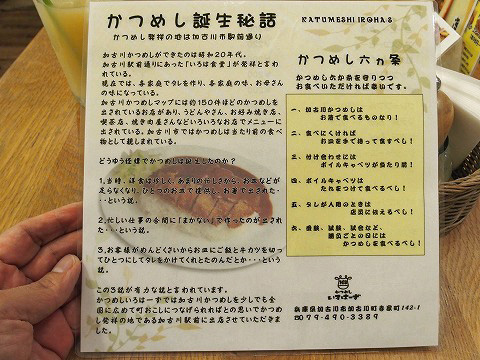 かつめし誕生秘話
かつめし発祥の地は加古川市駅前通り
加古川かつめしができたのは昭和20年代。
加古川駅前通りにあった「いろは食堂」が発祥と言わ
れている。
現在では、各家庭でタレを作り、各家庭の味、お母さ
んの味になっている。
加古川かつめしマップには約150件ほどのかつめしを
出されているお店があり、うどんやさん、お好み焼き店、
喫茶店、焼き肉屋さんなどいろいろなお店でメニューに
出されている。加古川市ではかつめしは当たり前の食べ
物として親しまれている。
どうゆう経緯でかつめしは誕生したのか？
1,当時、洋食は珍しく、あまりの忙しさから、お皿などが
足らなくなり、ひとつのお皿で提供し、お箸で出された・・
・という説。
2,忙しい仕事の合間に「まかない」で作ったのが出され
た・・・という説。
3,お客様がめんどくさいからお皿にご飯と牛カツを切っ
てひとつにしてタレをかけてくれとたのんだとか・・・という
説。
この3説が有力な説と言われています。
かつめしいろはーずでは加古川かつめしを少しでも全
国に広めて町おこしにつなげられればとの思いでかつめ
し発祥の地である加古川駅前に出店させていただきまし
た。
KATUMESHI IROHA,S
かつめし六ヵ条
かつめし六か条を守りつつ
お食べいただければ幸いです。
一、加古川かつめしは
お箸で食べるものなり！
二、食べにくければ
お皿を手で持って食すべし！
三、付け合わせには
ボイルキャベツが当たり前！
四、ボイルキャベツは
たれをつけて食べるべし！
五、タレが入用のときは
店員に伝えるべし！
六、受験、試験、試合など、
勝負ごとの日には
かつめしを食べるべし！
かつめし
いろはーず
兵庫県加古川市加古川町寺家町142-1
079-490-3389